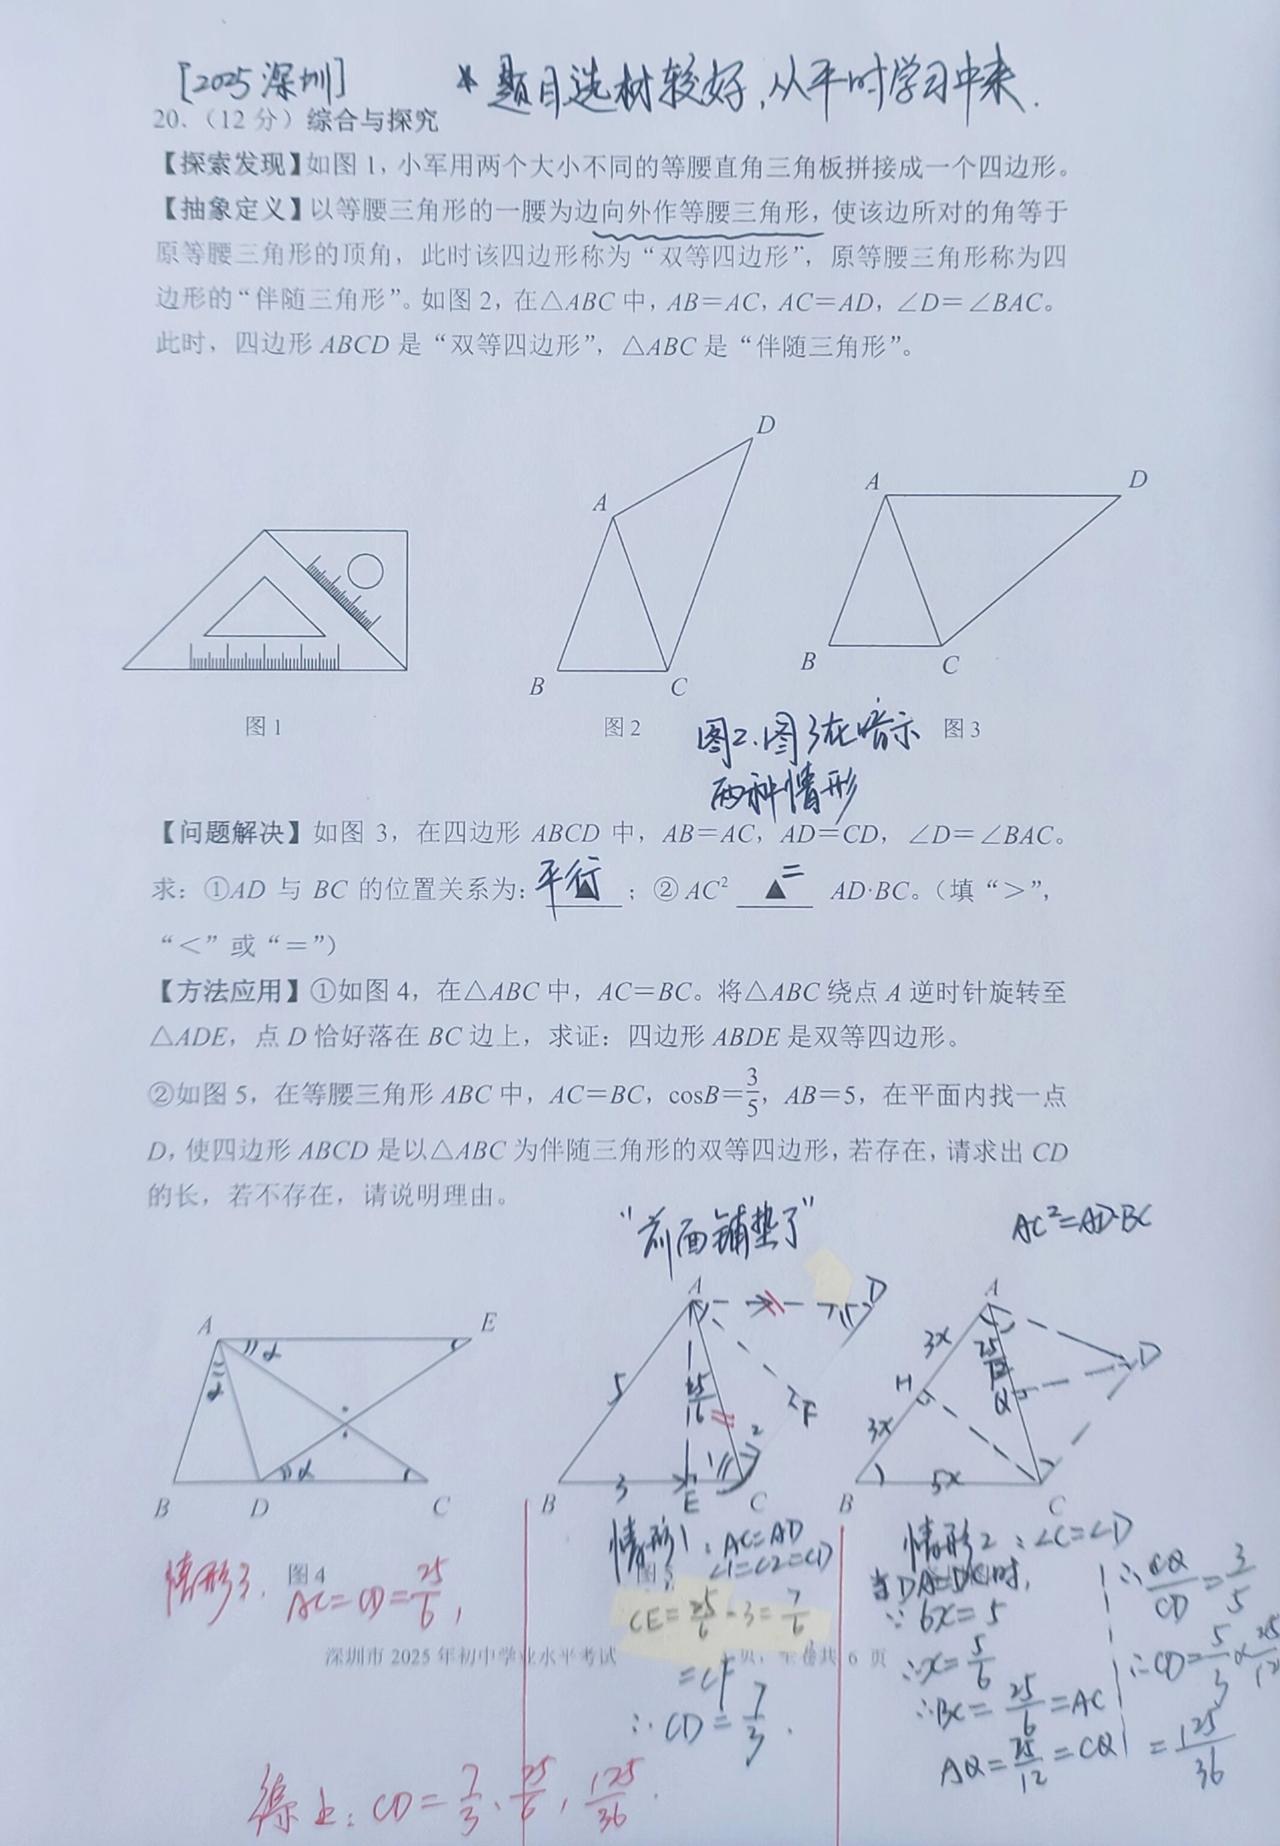 [2025深圳] *题目选材较好,从平时学习中来.
20.（12分）综合与探究
【探索发现】如图1,小军用两个大小不同的等腰直角三角板拼接成一个四边形。
【抽象定义】以等腰三角形的一腰为边向外作等腰三角形，使该边所对的角等于
原等腰三角形的顶角，此时该四边形称为“双等四边形”，原等腰三角形称为四
边形的“伴随三角形”。如图2，在△ABC中，AB＝AC，AC＝AD，∠D＝∠BAC。
此时，四边形ABCD是“双等四边形”，△ABC是“伴随三角形”。
A B C D
A B C D
图1
图2
图3
图2.图3在暗示
两种情形
【问题解决】如图3，在四边形ABCD中，AB＝AC，AD＝CD，∠D＝∠BAC。
求：①AD与BC的位置关系为:平行▲；②AC² ▲= AD·BC。（填“＞”，
“＜”或“＝”）
【方法应用】①如图4，在△ABC中，AC＝BC。将△ABC绕点A逆时针旋转至
△ADE，点D恰好落在BC边上，求证：四边形ABDE是双等四边形。
②如图5，在等腰三角形ABC中，AC＝BC，cosB＝3/5，AB＝5，在平面内找一点
D，使四边形ABCD是以△ABC为伴随三角形的双等四边形，若存在，请求出CD
的长，若不存在，请说明理由。
“前面铺垫了”
AC²=AD·BC
A E B D C α α α
A D 5 25/16 F 1 2 B 3 E C
A 3x H 3x 25/12 Q D B 5x C
图4
情形3. AC=CD=25/6,
情形1: AC=AD
∠1=∠2=∠D
CE=25/6-3=7/6
=CF
∴CD=7/3.
情形2:∠C=∠D
当DA=DC时,
∵6x=5
∴x=5/6
∴BC=25/6=AC
AQ=25/12=CQ
∴CQ/CD=3/5
∴CD=5/3×25/12
=125/36
深圳市2025年初中学业水平考试 页，全卷共6页
综上:CD=7/3、25/6,125/36.